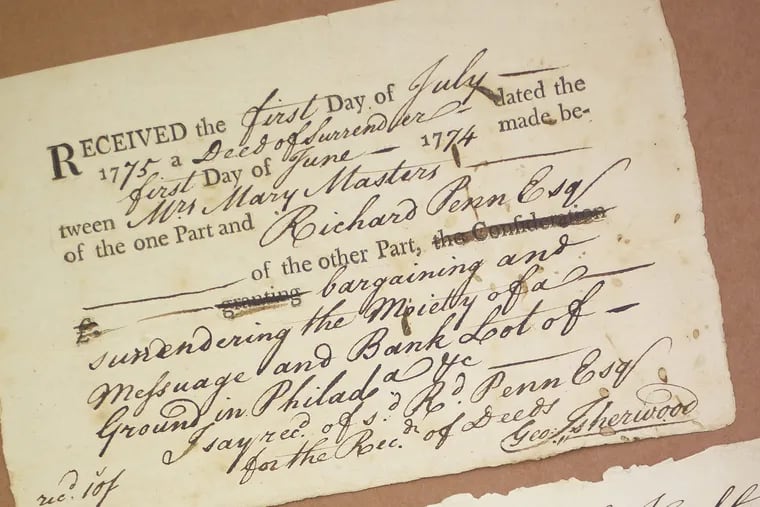 RECEIVED the first Day of July
1775 a Deed of Surrender dated the
first Day of June 1774 made be-
tween Mrs Mary Masters
of the one Part and Richard Penn Esq
of the other Part, the Consideration
granting bargaining and
surrendering the Moiety of a
Messuage and Bank Lot of
Ground in Philada &c
I say recd. of sd. Rd. Penn Esq
for the Recdr of Deeds
Geo: Isherwood
recd. 10/